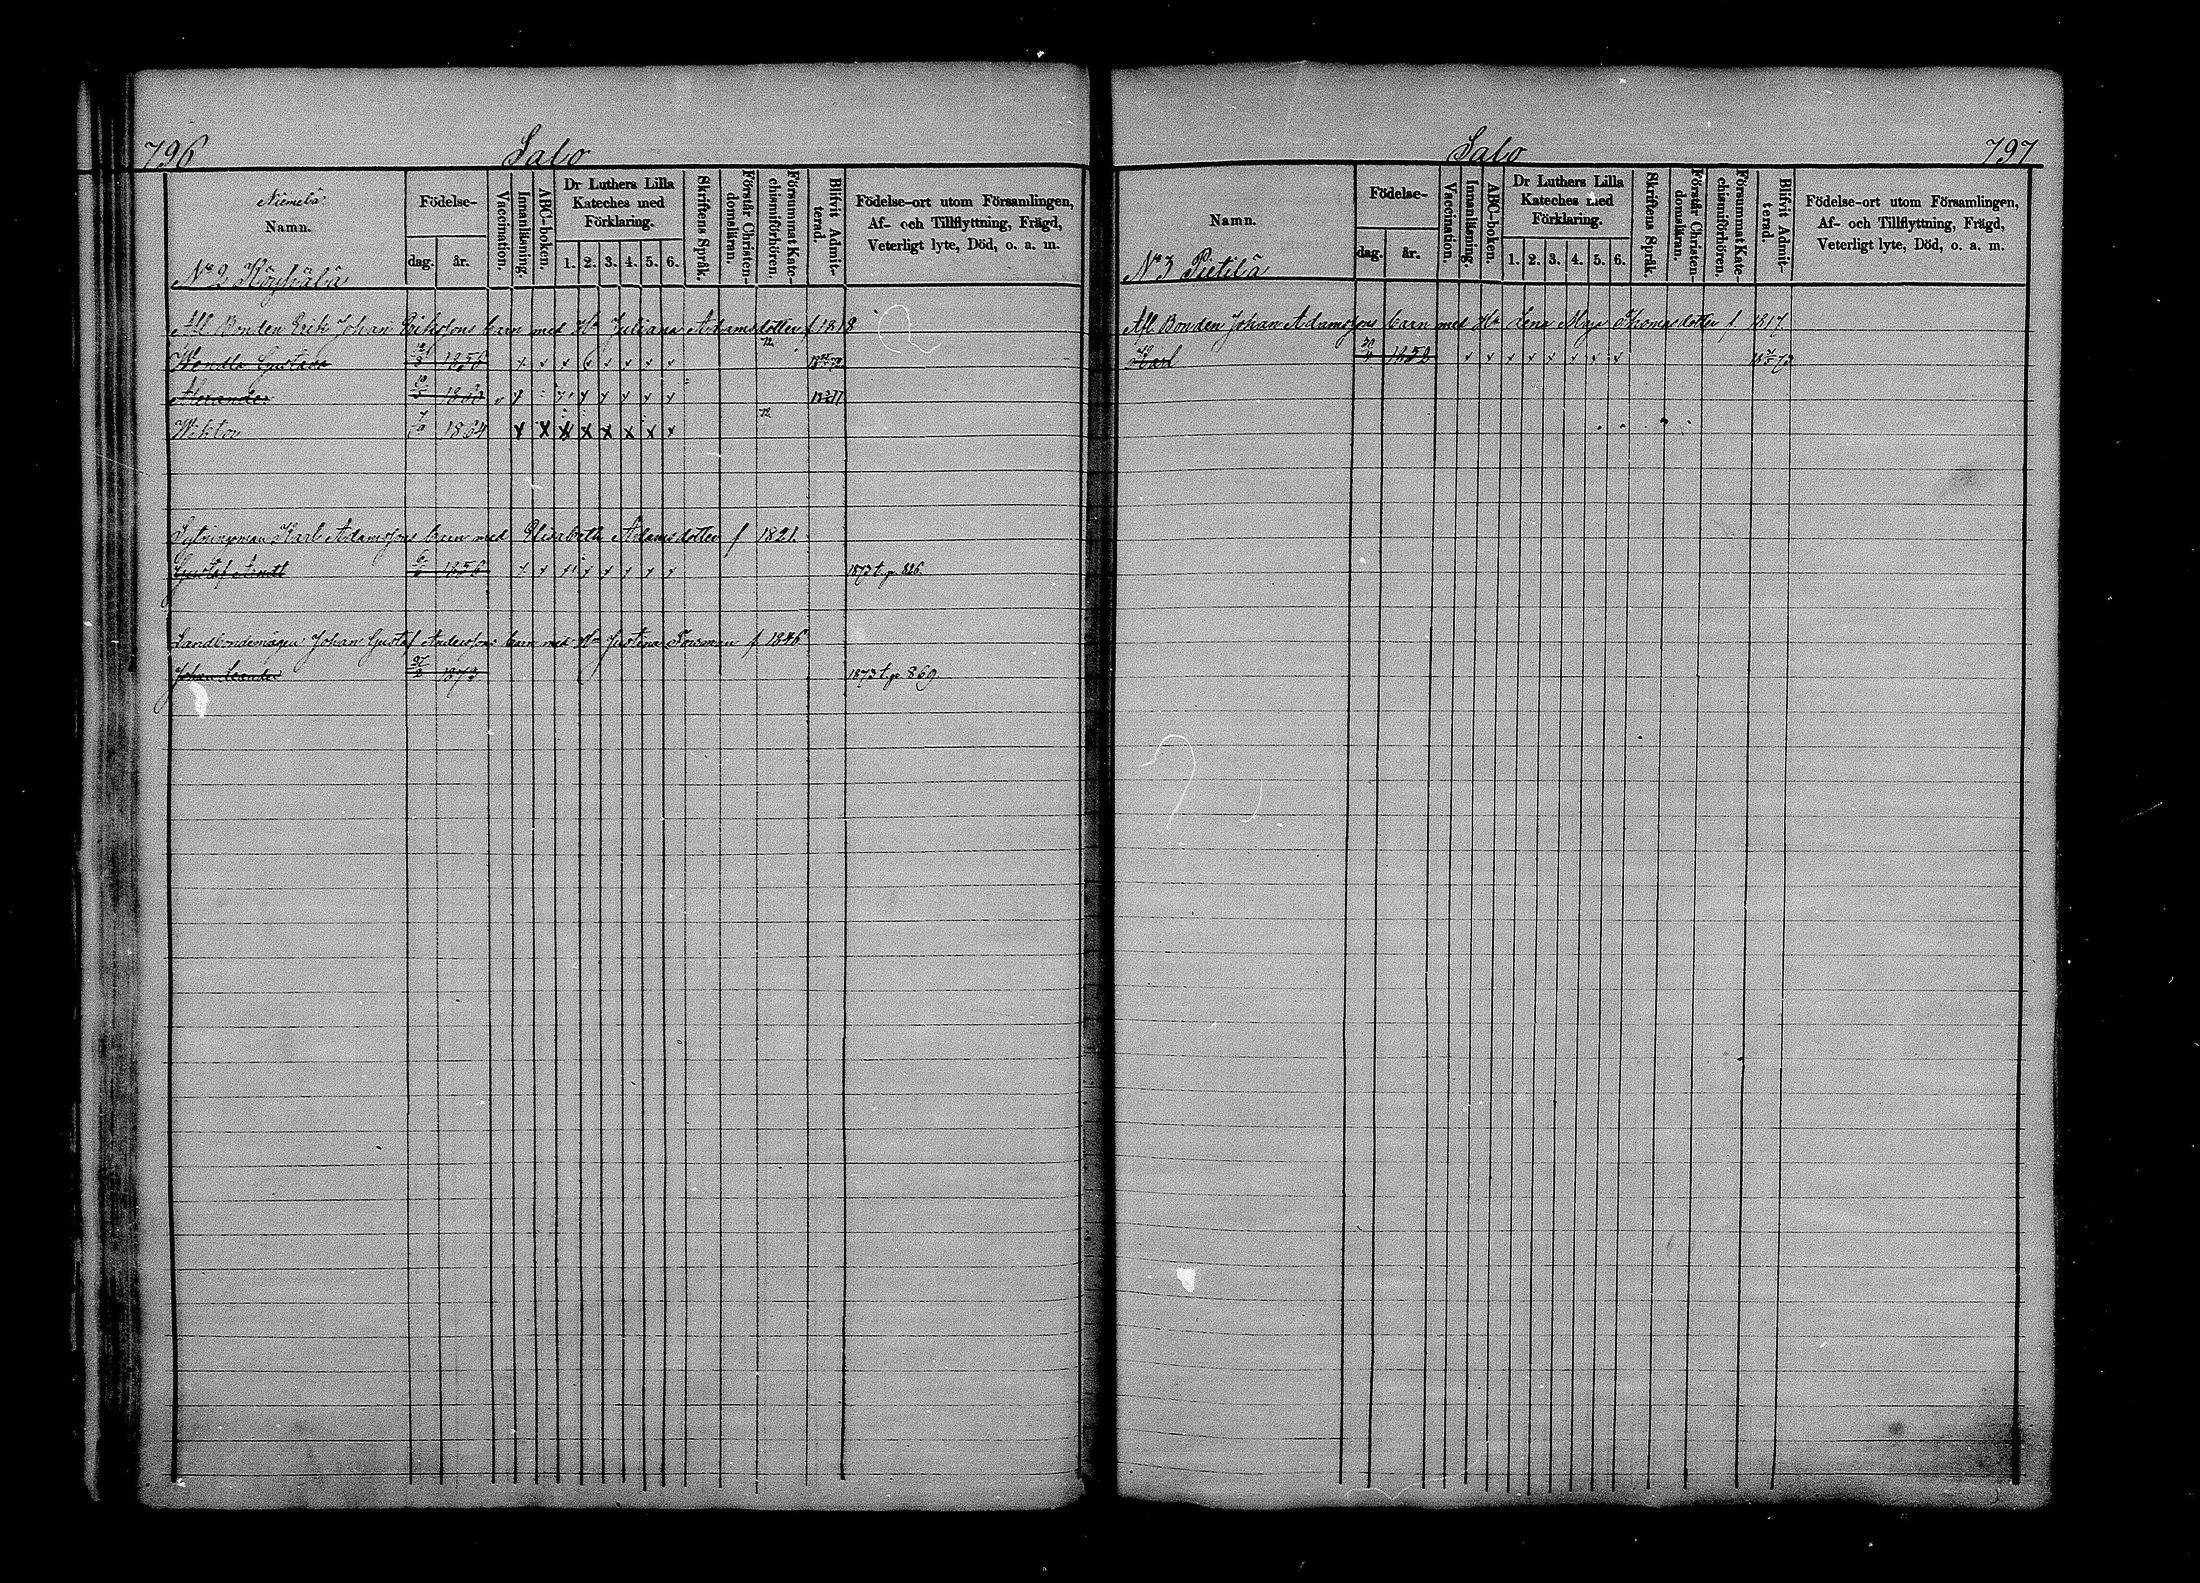 796 Salo
Niemelä.
Namn.
Födelse-
dag. år.
Vaccination.
Innanläsning.
ABC-boken.
Dr Luthers Lilla
Kateches med
Förklaring.
1. 2. 3. 4. 5. 6.
Skriftens Språk.
Förstår Christen-
domsläran.
Försummat Kate-
chismiförhören.
Blifvit Admit-
terad.
Födelse-ort utom Församlingen,
Af- och Tillflyttning, Frägd,
Veterligt lyte, Död, o. a. m.
No 2 Köyhälä
Afl. Bonden Erik Johan Erikssons barn med Hu Juliana Adamsdotter f 1818
Wendla Gustava 1856
Alexander 1860
Wiktor 1864
Karl Adamssons barn med Elisabeth Adamsdotter f 1821.
Gustaf 1856 1873 t. p. 826.
Landbondemågen Johan Gustaf Anderssons barn med Hu Justina f 1846
Johan Leander 1873 1873 t. p. 869.
Salo 797
Namn.
Födelse-
dag. år.
Vaccination.
Innanläsning.
ABC-boken.
Dr Luthers Lilla
Kateches med
Förklaring.
1. 2. 3. 4. 5. 6.
Skriftens Språk.
Förstår Christen-
domsläran.
Försummat Kate-
chismiförhören.
Blifvit Admit-
terad.
Födelse-ort utom Församlingen,
Af- och Tillflyttning, Frägd,
Veterligt lyte, Död, o. a. m.
No 3 Pietilä
Afl. Bonden Johan Adamssons barn med Hu Lena Maja Thomasdotter f. 1817.
Karl 1858